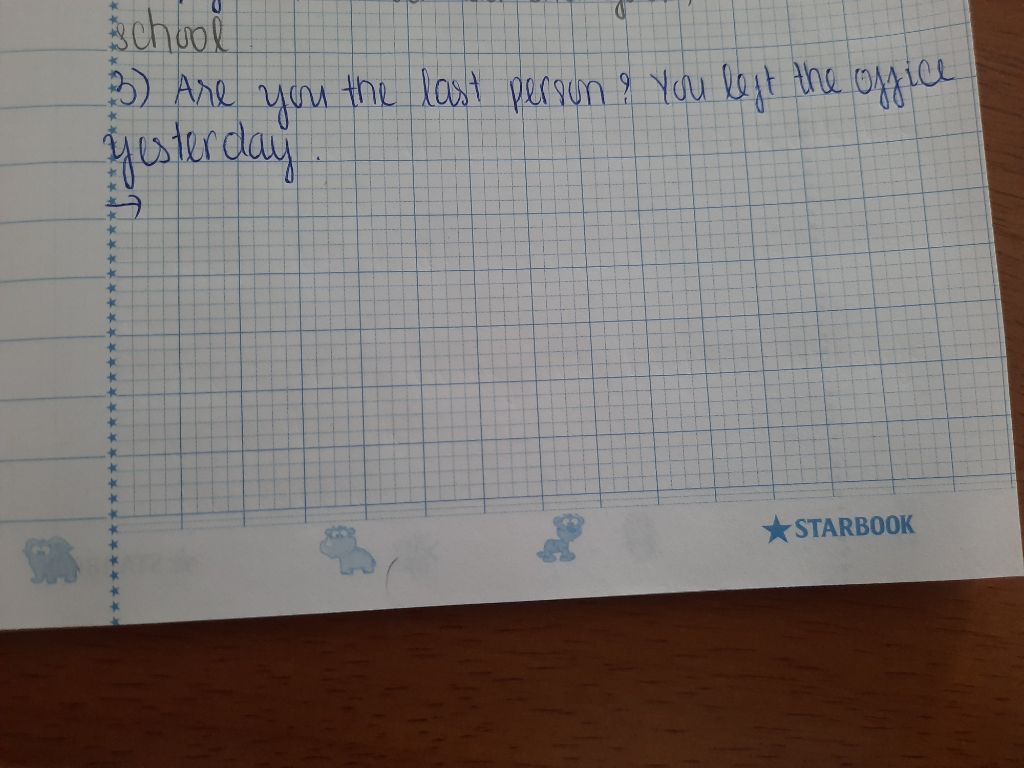 school
3) Are you the last person? You left the office
yesterday.
→
STARBOOK